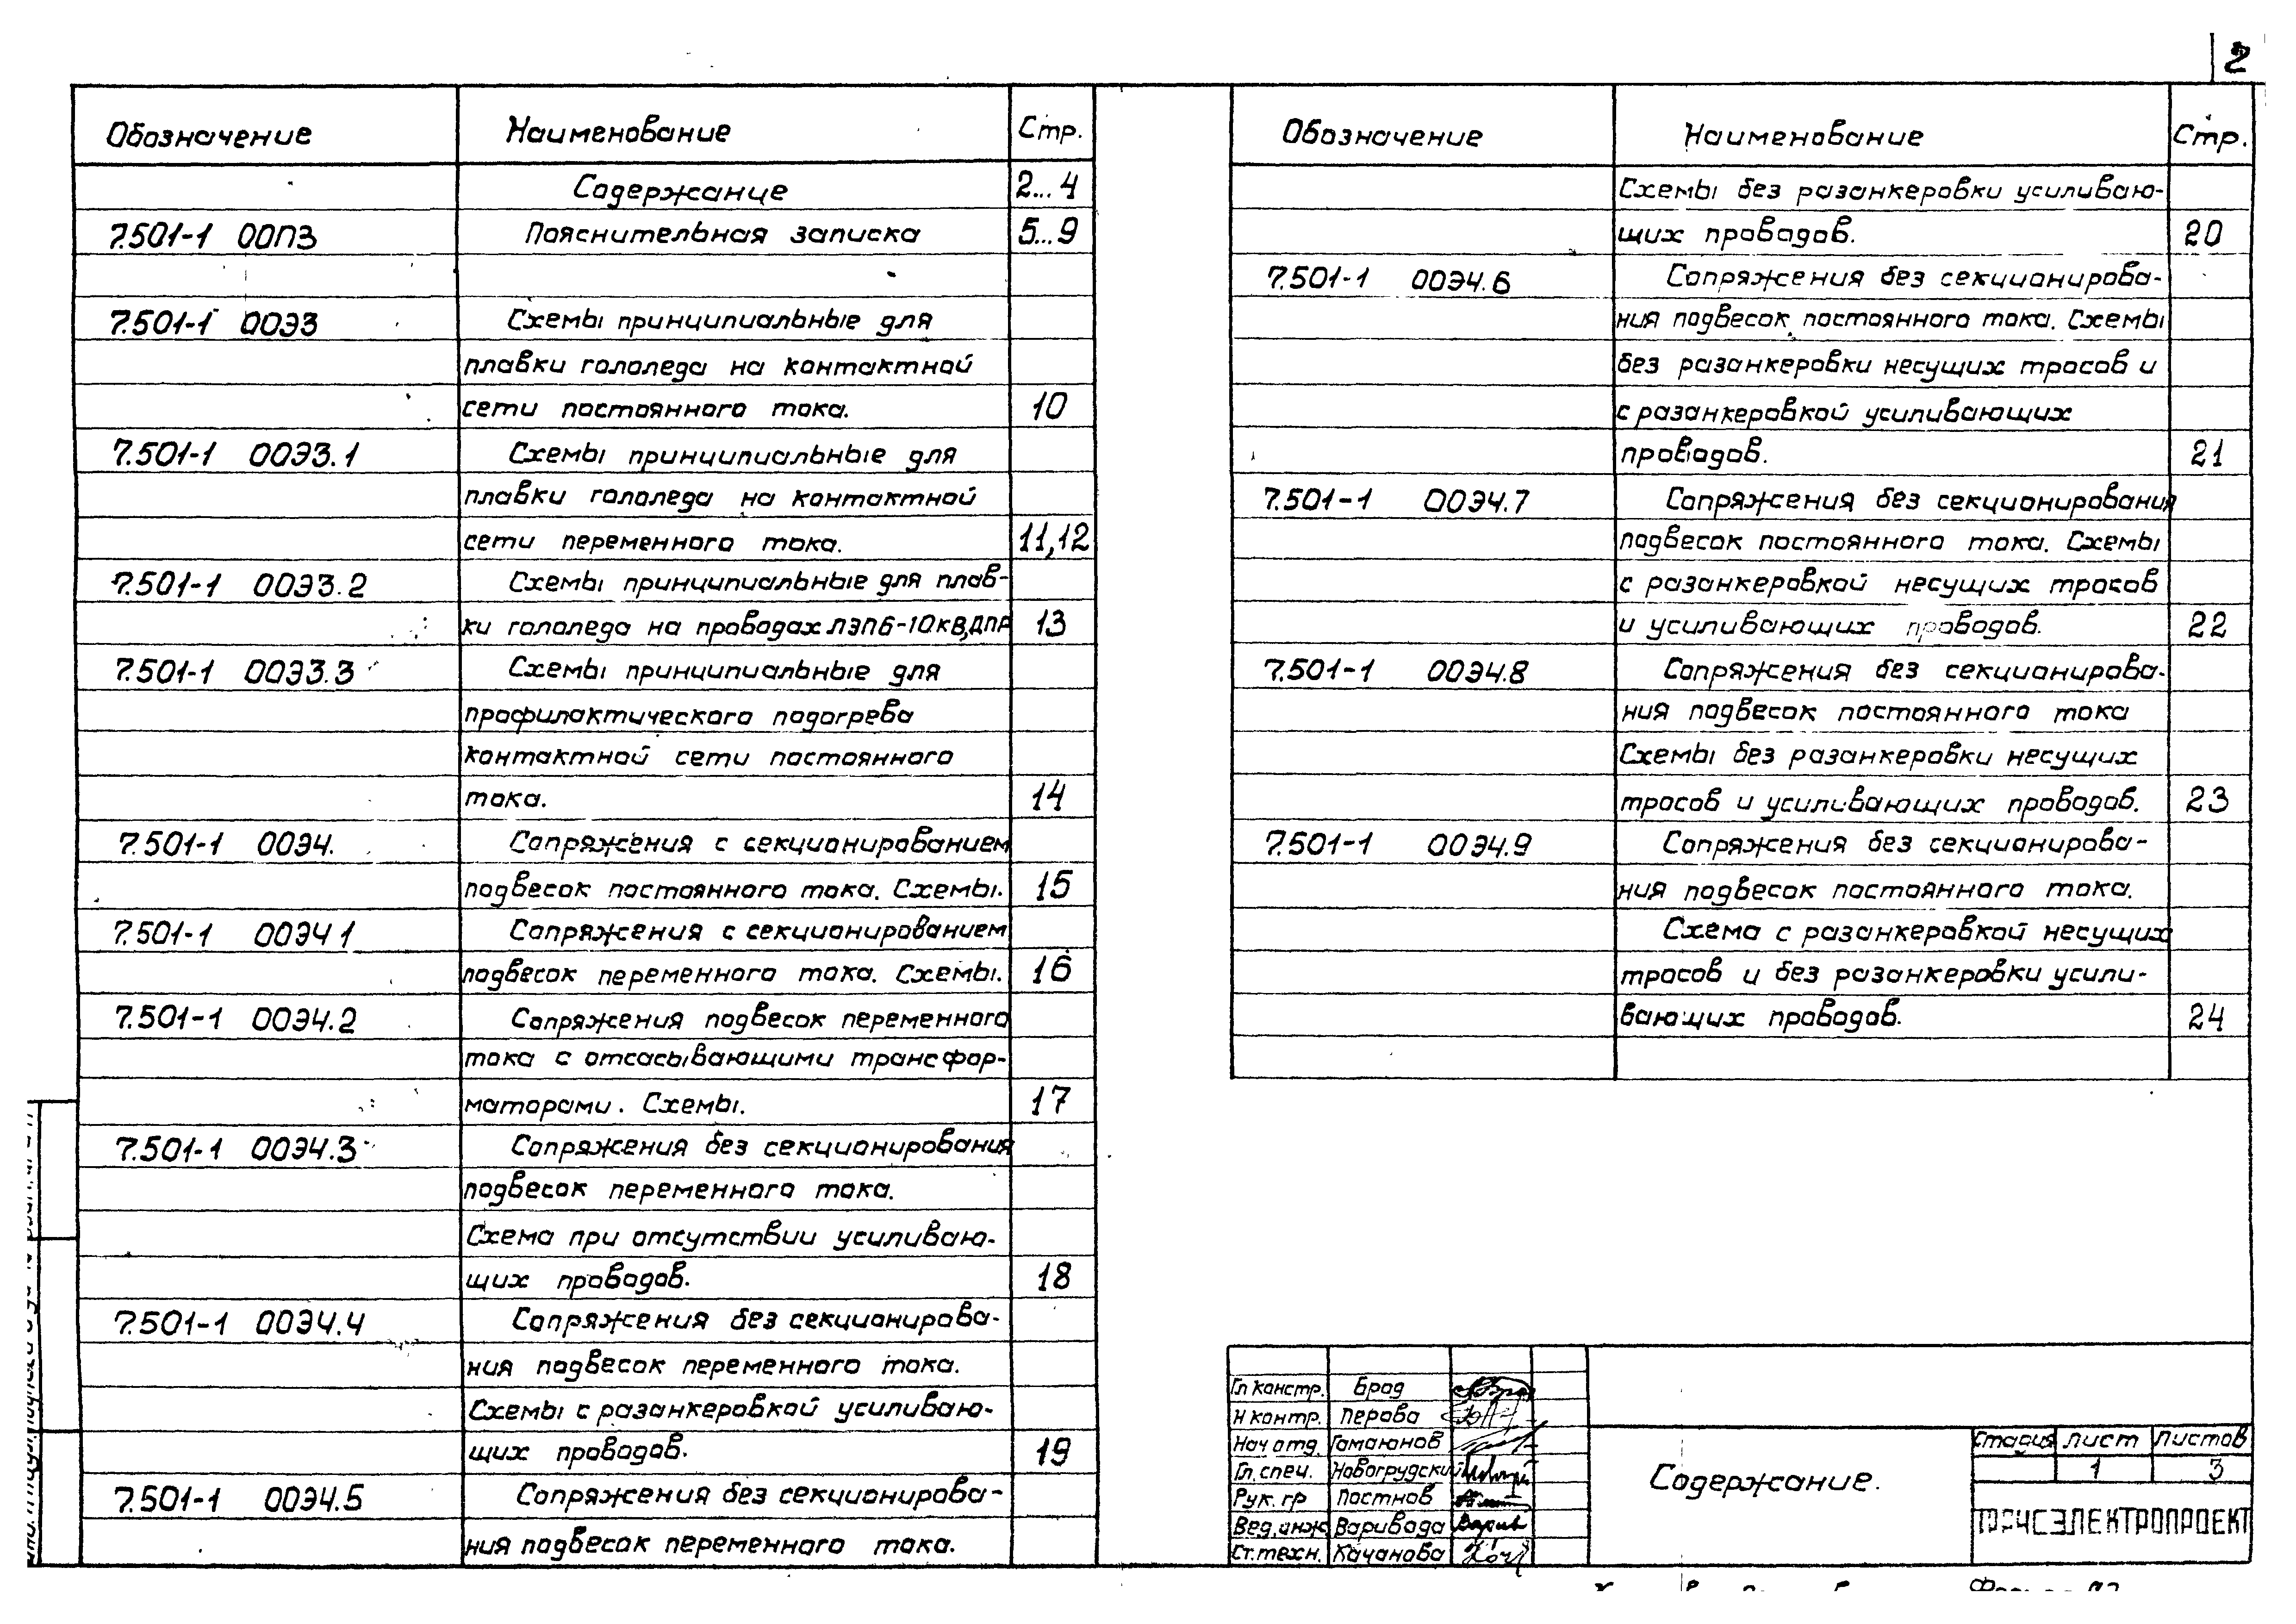 2
Обозначение Наименование Стр.
Содержание 2...4
7.501-1 00ПЗ Пояснительная записка 5...9
7.501-1 00Э3 Схемы принципиальные для
плавки гололеда на контактной
сети постоянного тока. 10
7.501-1 00Э3.1 Схемы принципиальные для
плавки гололеда на контактной
сети переменного тока. 11,12
7.501-1 00Э3.2 Схемы принципиальные для плав-
ки гололеда на проводах ЛЭП6-10кВ,ДПР 13
7.501-1 00Э3.3 Схемы принципиальные для
профилактического подогрева
контактной сети постоянного
тока. 14
7.501-1 00Э4. Сопряжения с секционированием
подвесок постоянного тока. Схемы. 15
7.501-1 00Э4 1 Сопряжения с секционированием
подвесок переменного тока. Схемы. 16
7.501-1 00Э4.2 Сопряжения подвесок переменного
тока с отсасывающими трансфор-
маторами. Схемы. 17
7.501-1 00Э4.3 Сопряжения без секционирования
подвесок переменного тока.
Схема при отсутствии усиливаю-
щих проводов. 18
7.501-1 00Э4.4 Сопряжения без секционирова-
ния подвесок переменного тока.
Схемы с разанкеровкой усиливаю-
щих проводов. 19
7.501-1 00Э4.5 Сопряжения без секционирова-
ния подвесок переменного тока.
Обозначение Наименование Стр.
Схемы без разанкеровки усиливаю-
щих проводов. 20
7.501-1 00Э4.6 Сопряжения без секционирова-
ния подвесок постоянного тока. Схемы
без разанкеровки несущих тросов и
с разанкеровкой усиливающих
проводов. 21
7.501-1 00Э4.7 Сопряжения без секционирования
подвесок постоянного тока. Схемы
с разанкеровкой несущих тросов
и усиливающих проводов. 22
7.501-1 00Э4.8 Сопряжения без секционирова-
ния подвесок постоянного тока
Схемы без разанкеровки несущих
тросов и усиливающих проводов. 23
7.501-1 00Э4.9 Сопряжения без секционирова-
ния подвесок постоянного тока.
Схема с разанкеровкой несущих
тросов и без разанкеровки усили-
вающих проводов. 24
Гл констр. Брод
Н контр. Перова
Нач отд. Гамаюнов
Гл. спец. Новогрудский
Рук. гр Постнов
Вед. инж Варивода
Ст. техн. Качанова
Содержание.
Стадия Лист Листов
1 3
ТРАНСЭЛЕКТРОПРОЕКТ